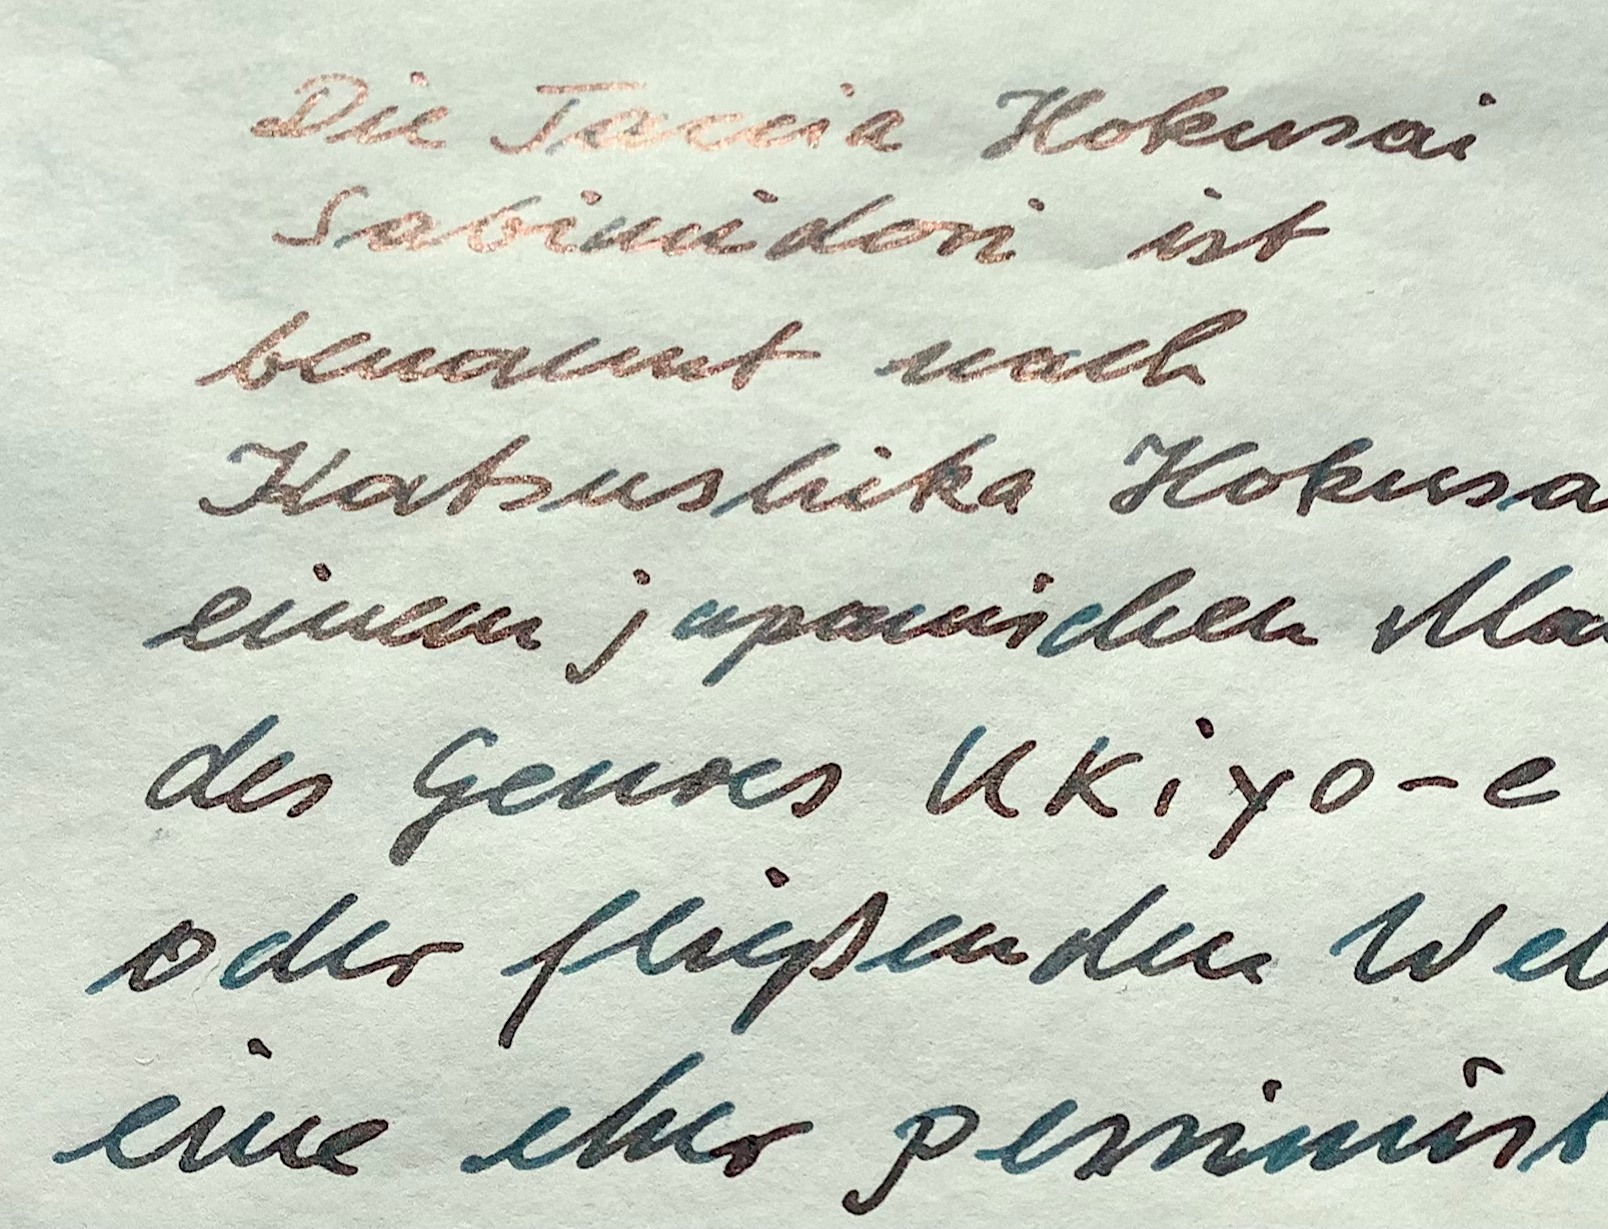 Die Taccia Hokusai
Sabimidori ist
benannt nach
Katsushika Hokusa
einem japanischen Ma
des Genres Ukiyo-e
oder fließenden Wel
eine eher pessimist